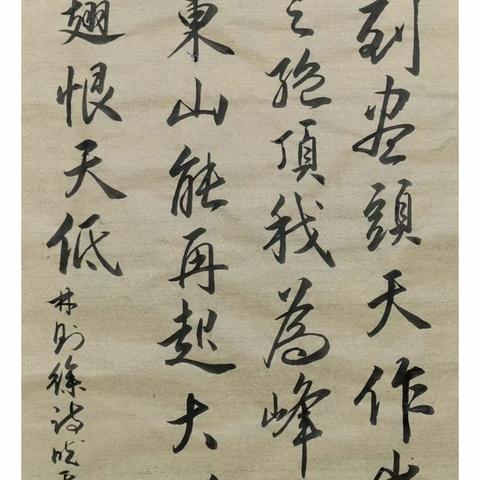 到盡頭天作
絶頂我為峰
東山能再起大
翅恨天低
林則徐詩